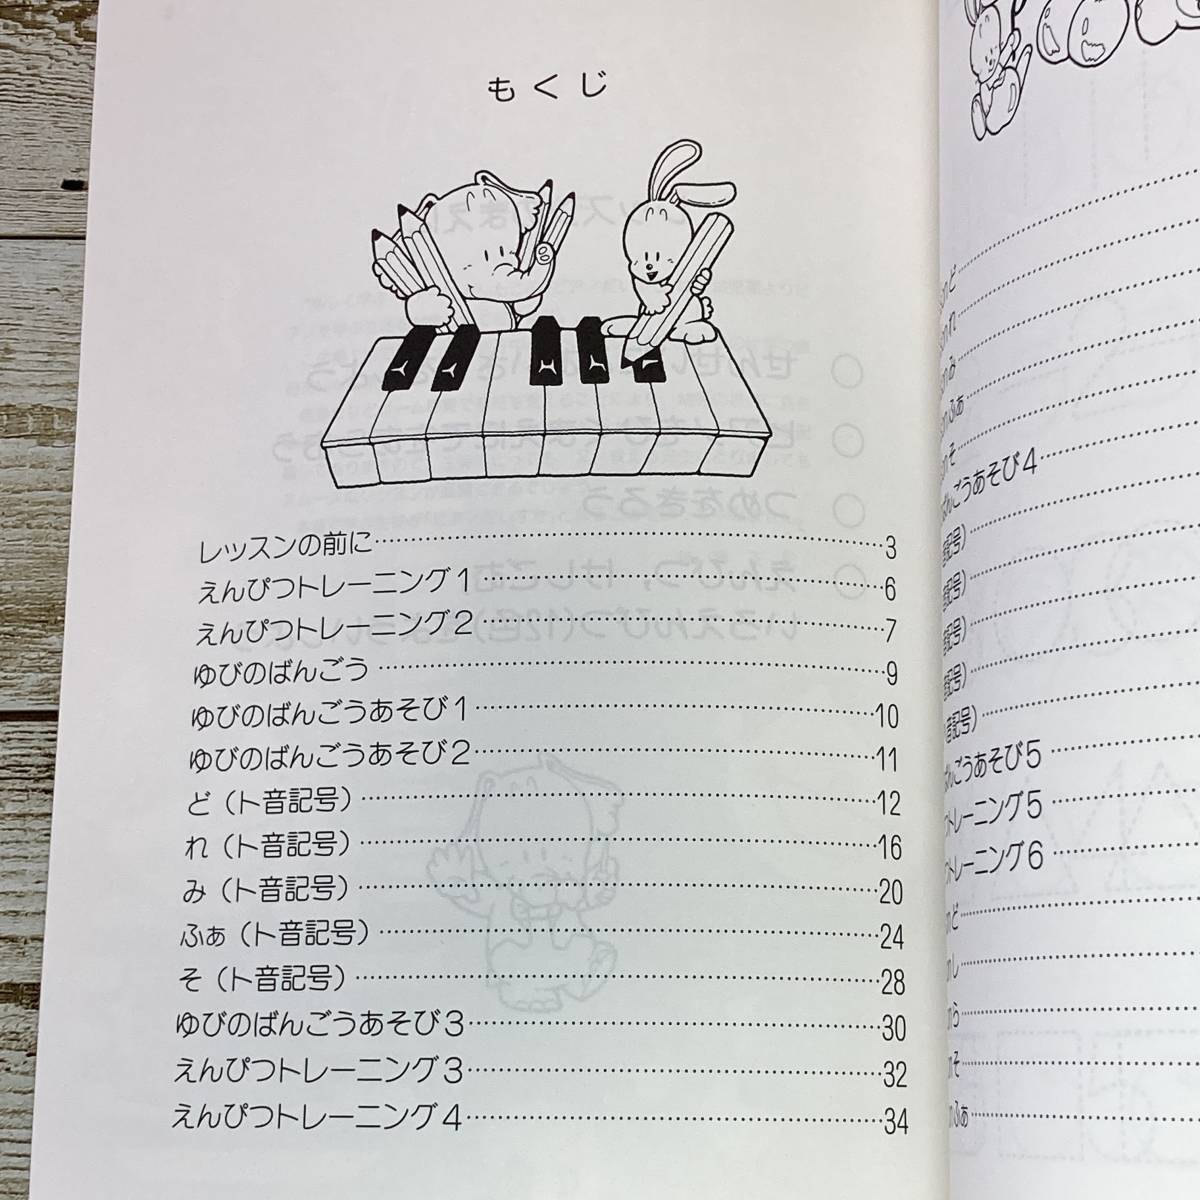 もくじ
レッスンの前に 3
えんぴつトレーニング1 6
えんぴつトレーニング2 7
ゆびのばんごう 9
ゆびのばんごうあそび1 10
ゆびのばんごうあそび2 11
ど（ト音記号） 12
れ（ト音記号） 16
み（ト音記号） 20
ふぁ（ト音記号） 24
そ（ト音記号） 28
ゆびのばんごうあそび3 30
えんぴつトレーニング3 32
えんぴつトレーニング4 34
ど
れ
み
ふぁ
そ
んごうあそび4
記号）
記号）
記号）
記号）
音記号）
んごうあそび5
トレーニング5
トレーニング6
ど
し
ら
そ
ふぁ